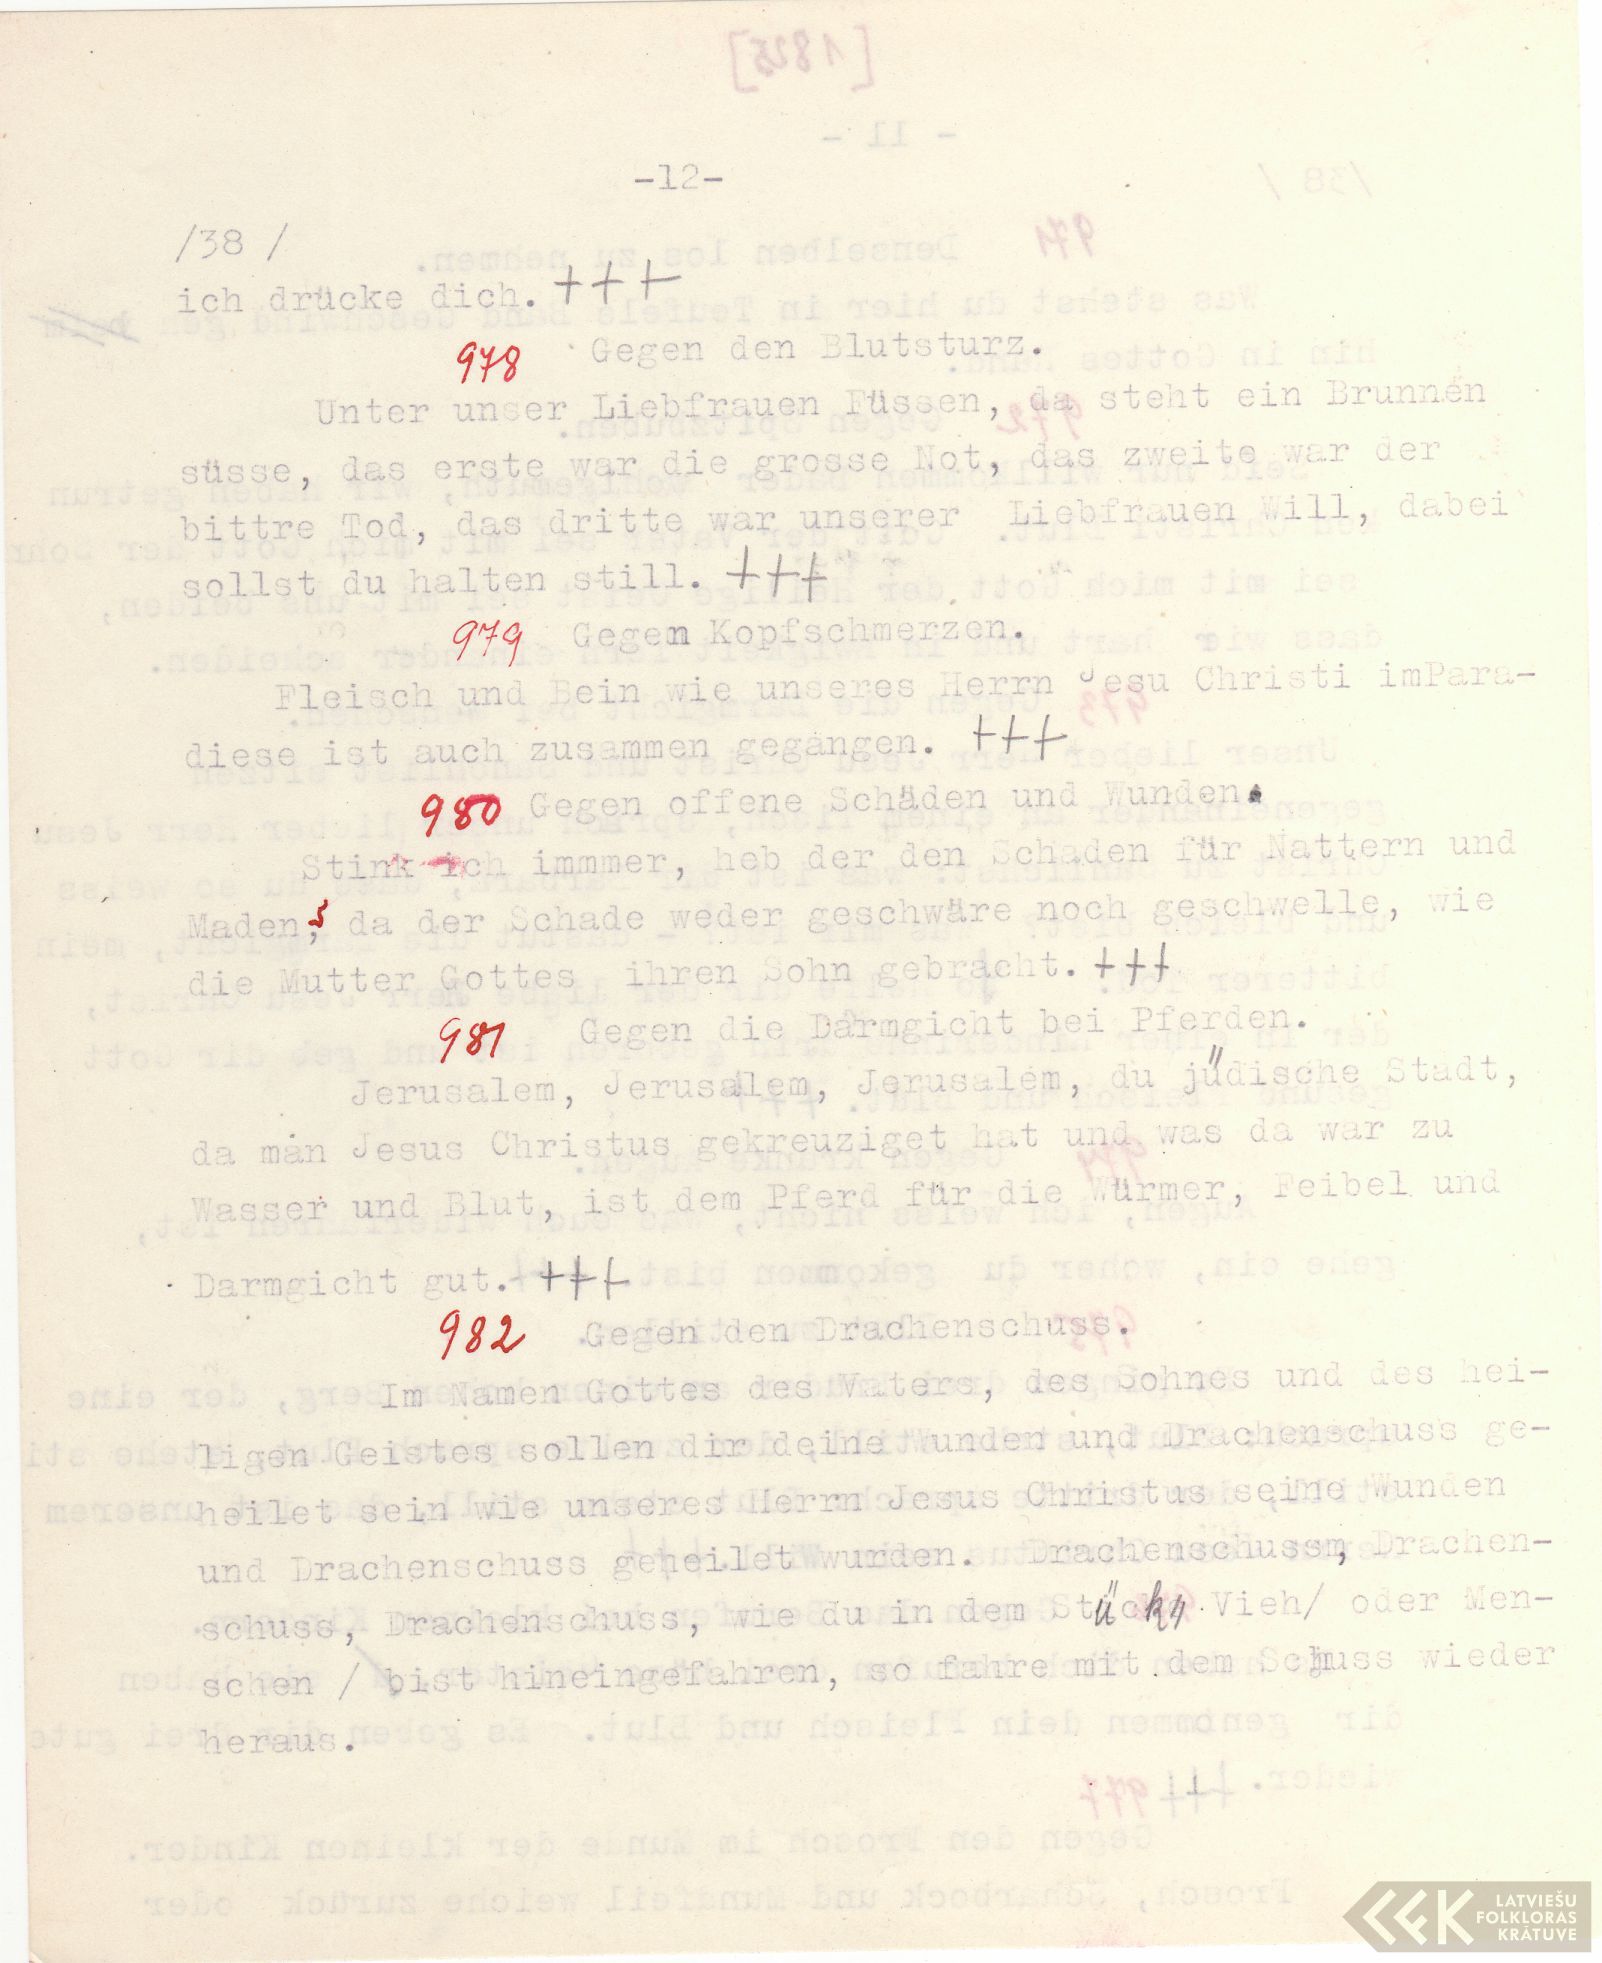 -12-
/38 /
ich drücke dich. +++
978 Gegen den Blutsturz.
Unter unser Liebfrauen Füssen, da steht ein Brunnen
süsse, das erste war die grosse Not, das zweite war der
bittre Tod, das dritte war unserer Liebfrauen Will, dabei
sollst du halten still. +++
979 Gegen Kopfschmerzen.
Fleisch und Bein wie unseres Herrn Jesu Christi imPara-
diese ist auch zusammen gegangen. +++
980 Gegen offene Schäden und Wunden.
Stink ich immmer, heb der den Schaden für Nattern und
Maden, da der Schade weder geschwäre noch geschwelle, wie
die Mutter Gottes ihren Sohn gebracht. +++
981 Gegen die Darmgicht bei Pferden.
Jerusalem, Jerusalem, Jerusalem, du jüdische Stadt,
da man Jesus Christus gekreuziget hat und was da war zu
Wasser und Blut, ist dem Pferd für die Würmer, Feibel und
Darmgicht gut. +++
982 Gegen den Drachenschuss.
Im Namen Gottes des Vaters, des Sohnes und des hei-
ligen Geistes sollen dir deine Wunden und Drachenschuss ge-
heilet sein wie unseres Herrn Jesus Christus seine Wunden
und Drachenschuss geheilet wurden. Drachenschuss, Drachen-
schuss, Drachenschuss, wie du in dem Stück Vieh/ oder Men-
schen / bist hineingefahren, so fahre mit dem Schuss wieder
heraus.
LATVIEŠU
FOLKLORAS
KRĀTUVE